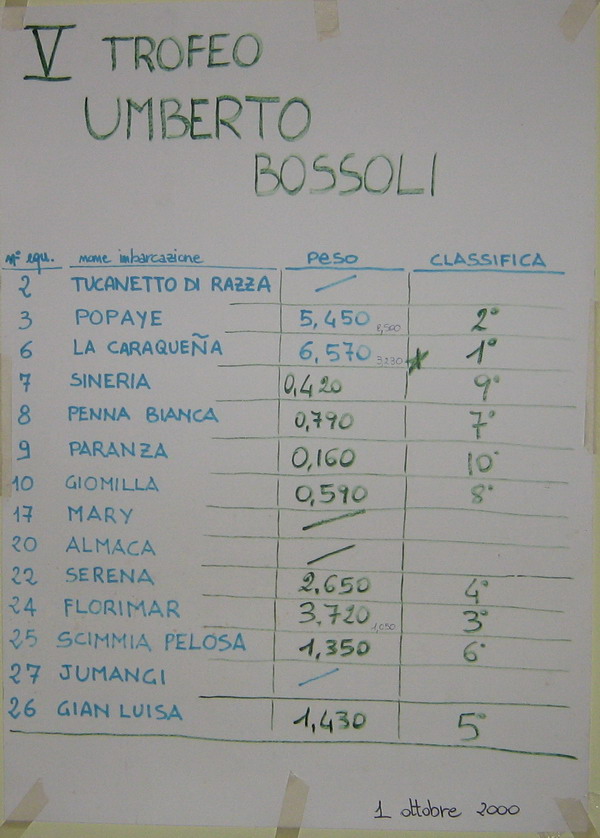 V TROFEO
UMBERTO
BOSSOLI
n° equ. nome imbarcazione PESO CLASSIFICA
2 TUCANETTO DI RAZZA /
3 POPAYE 5,450 2°
6 LA CARAQUEÑA 6,570 3230 1°
7 SINERIA 0,420 9°
8 PENNA BIANCA 0,790 7°
9 PARANZA 0,160 10°
10 GIOMILLA 0,590 8°
17 MARY /
20 ALMACA /
22 SERENA 2,650 4°
24 FLORIMAR 3,720 1,050 3°
25 SCIMMIA PELOSA 1,350 6°
27 JUMANGI /
26 GIAN LUISA 1,430 5°
1 ottobre 2000